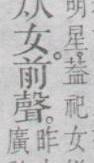 明星。葢祀女
从女。前聲。昨
廣